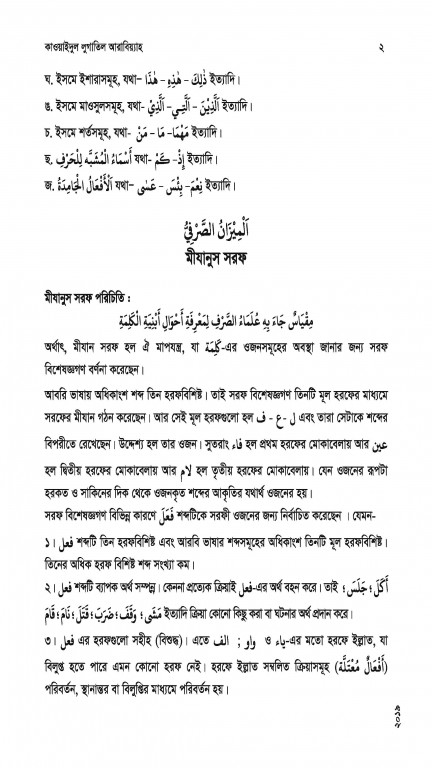 কাওয়াইদুল লুগাতিল আরাবিয়্যাহ ২
ঘ. ইসমে ইশারাসমূহ, যথা– هٰذَا – هٰذِهِ – ذٰلِكَ ইত্যাদি।
ঙ. ইসমে মাওসুলসমূহ, যথা- اَلَّذِيْ – اَلَّتِيْ – اَلَّذِيْنَ ইত্যাদি।
চ. ইসমে শর্তসমূহ, যথা- مَنْ – مَا – مَهْمَا ইত্যাদি।
ছ. أَسْمَاءُ الْمُشَبَّه لِلْحَرْفِ যথা- كَمْ – إِذْ ইত্যাদি।
জ. اَلْأَفْعَالُ الْجَامِدَةُ যথা– عَسٰى – بِئْسَ – نِعْمَ ইত্যাদি।
اَلْمِيْزَانُ الصَّرْفِيُّ
মীযানুস সরফ
মীযানুস সরফ পরিচিতি :
مِقْيَاسٌ جَاءَ بِهِ عُلَمَاءُ الصَّرْفِ لِمَعْرِفَةِ أَحْوَالِ أَبْنِيَةِ الْكَلِمَةِ
অর্থাৎ, মীযান সরফ হল ঐ মাপযন্ত্র, যা كَلِمَة-এর ওজনসমূহের অবস্থা জানার জন্য সরফ
বিশেষজ্ঞগণ বর্ণনা করেছেন।
আবরি ভাষায় অধিকাংশ শব্দ তিন হরফবিশিষ্ট। তাই সরফ বিশেষজ্ঞগণ তিনটি মূল হরফের মাধ্যমে
সরফের মীযান গঠন করেছেন। আর সেই মূল হরফগুলো হল ف - ع - ل এবং তারা সেটাকে শব্দের
বিপরীতে রেখেছেন। উদ্দেশ্য হল তার ওজন। সুতরাং فاء হল প্রথম হরফের মোকাবেলায় আর عين
হল দ্বিতীয় হরফের মোকাবেলায় আর لام হল তৃতীয় হরফের মোকাবেলায়। যেন ওজনের রূপটা
হরকত ও সাকিনের দিক থেকে ওজনকৃত শব্দের আকৃতির যথার্থ ওজনের হয়।
সরফ বিশেষজ্ঞগণ বিভিন্ন কারণে فَعَلَ শব্দটিকে সরফী ওজনের জন্য নির্বাচিত করেছেন । যেমন-
১। فعل শব্দটি তিন হরফবিশিষ্ট এবং আরবি ভাষার শব্দসমূহের অধিকাংশ তিনটি মূল হরফবিশিষ্ট।
তিনের অধিক হরফ বিশিষ্ট শব্দ সংখ্যা কম।
২। فعل শব্দটি ব্যাপক অর্থ সম্পন্ন। কেননা প্রত্যেক ক্রিয়াই فعل-এর অর্থ বহন করে। তাই أَكَلَ؛ جَلَسَ؛
مَشٰى؛ وَقَفَ؛ ضَرَبَ؛ قَتَلَ؛ نَامَ؛ قَامَ ইত্যাদি ক্রিয়া কোনো কিছু করা বা ঘটনার অর্থ প্রদান করে।
৩। فعل এর হরফগুলো সহীহ (বিশুদ্ধ)। এতে الف ; واو ও ياء-এর মতো হরফে ইল্লাত, যা
বিলুপ্ত হতে পারে এমন কোনো হরফ নেই। হরফে ইল্লাত সম্বলিত ক্রিয়াসমূহ (أَفْعَالٌ مُعْتَلَّة)
পরিবর্তন, স্থানান্তর বা বিলুপ্তির মাধ্যমে পরিবর্তন হয়।
২০১৯